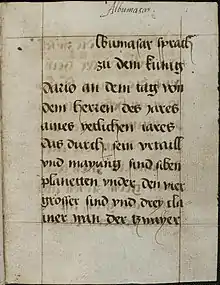 Albumasar
Albumasar sprach
zu dem kunig
dario an dem tag von
dem herren des jares
aines yetlichen iares
das durch sein vrtaill
vnd maynng sind siben
planetten vnder den vier
grosser sind vnd drey cla
iner wan der